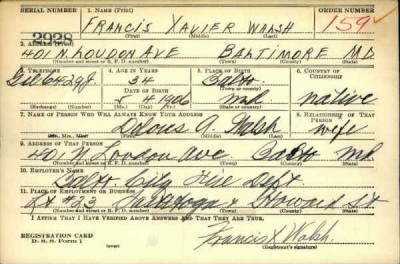 SERIAL NUMBER 1. NAME (Print) ORDER NUMBER
FRANCIS XAVIER WALSH 159
2928 (First) (Middle) (Last)
2. ADDRESS (Print)
401 N LOUDON AVE BALTIMORE MD.
(Number and street or R. F. D. number) (Town) (County) (State)
3. TELEPHONE 4. AGE IN YEARS 5. PLACE OF BIRTH 6. COUNTRY OF CITIZENSHIP
Gil 6429J 34 Balto
DATE OF BIRTH (Town or county)
1906 Md. native
(Exchange) (Number) (Mo.) (Day) (Yr.) (State or country)
7. NAME OF PERSON WHO WILL ALWAYS KNOW YOUR ADDRESS 8. RELATIONSHIP OF THAT PERSON
Delores A. Walsh wife
(Mr., Mrs., Miss) (First) (Middle) (Last)
9. ADDRESS OF THAT PERSON
401 N. Loudon Ave Balto Md
(Number and street or R. F. D. number) (Town) (County) (State)
10. EMPLOYER'S NAME
Balt City Fire Dept.
11. PLACE OF EMPLOYMENT OR BUSINESS
#23 Saratoga & Howard St
(Number and street or R. F. D. number) (Town) (County) (State)
I AFFIRM THAT I HAVE VERIFIED ABOVE ANSWERS AND THAT THEY ARE TRUE.
REGISTRATION CARD Francis X Walsh
D. S. S. Form 1 (Registrant's signature)